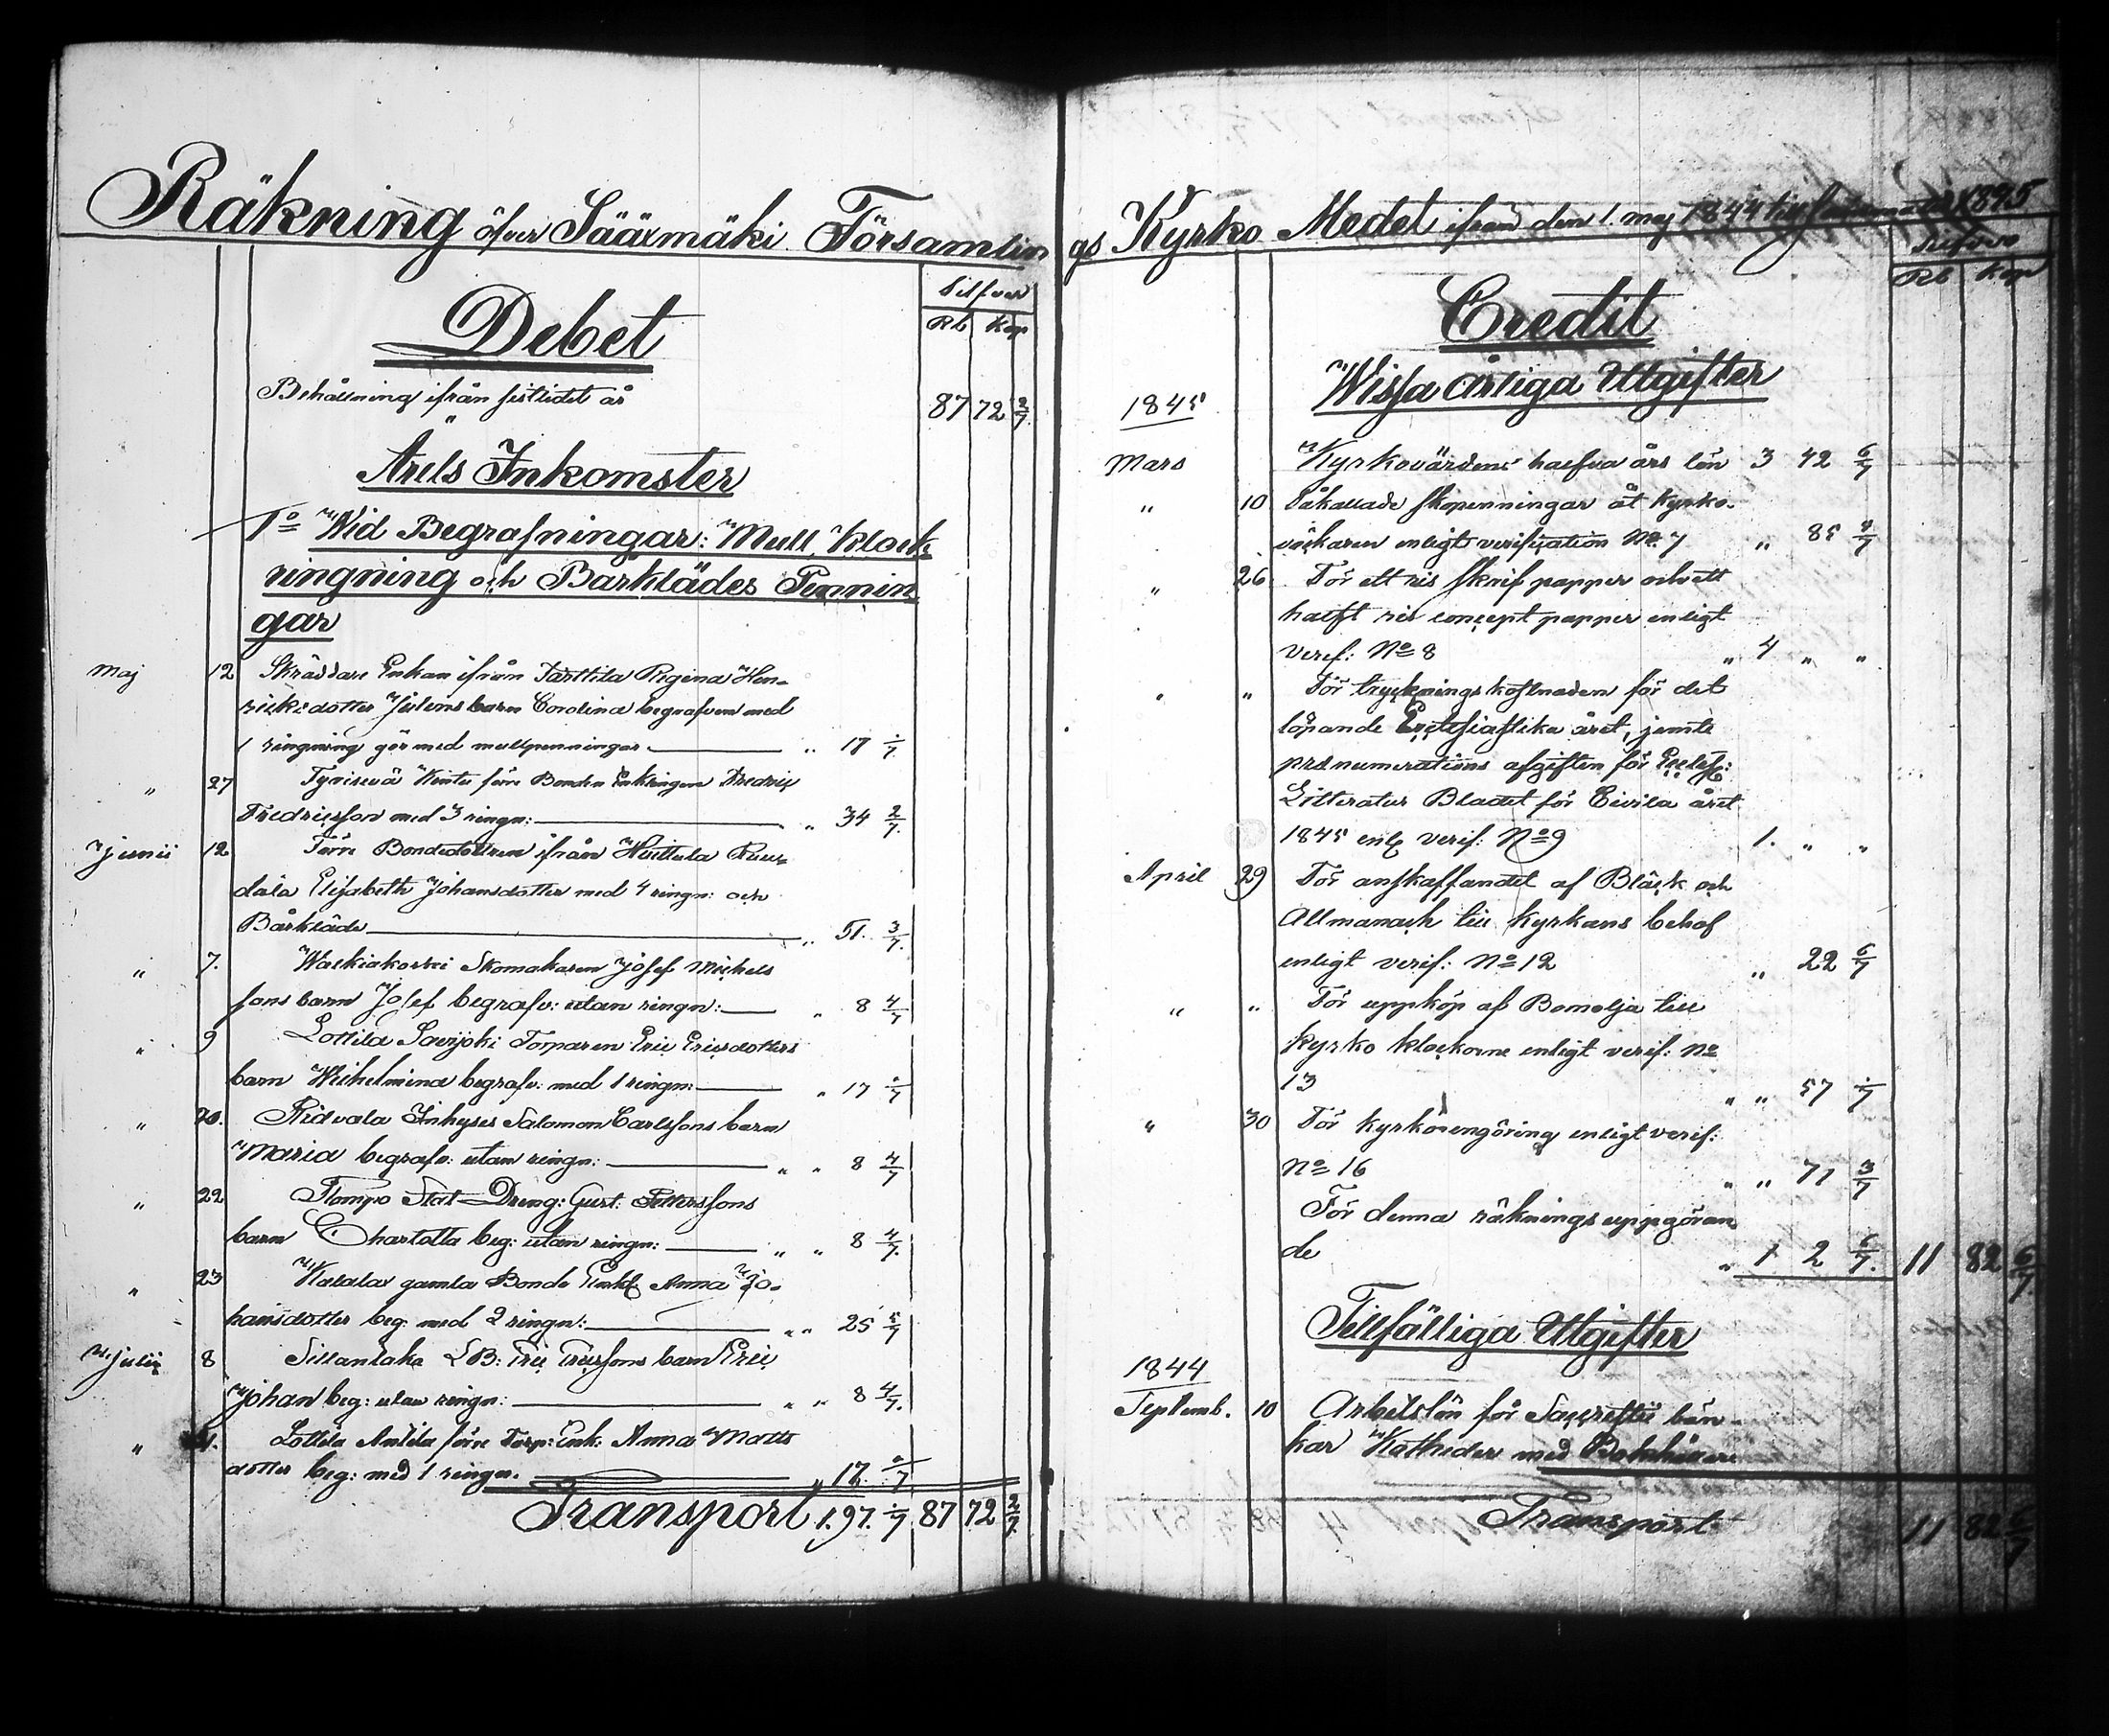 Räkning öfver Sääxmäki Församlin
Debet
Silfver
Rb Kop
Behållning ifrån sistledet år 87 72 2/7
Årets Inkomster
1o Wid Begrafningar: Mull, Klock
ringning och Barklädes Pennin
gar
Maj 12 Skräddare Enkan ifrån Tarttila Regina Hen-
ricksdotter Juliens barn Carolina begrafven med
1 ringning gör med mullpenningar " 17 1/7
" 27 Fredric
Fredricsson med 3 ringn: " 34 2/7.
Junii 12 Förre Bondedottren ifrån
Elisabeth Johansdotter med 4 ringn: och
Bårkläde " 51. 3/7.
" 7. Walkiakoski Skomakaren Josef Michels
sons barn Josef begrafv: utan ringn: " 8 4/7
" 9 Lottila Savijoki Torparen Eric Ericsdotters
barn Wilhelmina begrafv: med 1 ringn: " 17 1/7
" 20. Ridvala Inhyses Salomon Carlssons barn
Maria begrafv: utan ringn: " " 8 4/7
" 22 Flompo Stat-Dreng: Gust: Petterssons
barn Charlotta beg: utan ringn: " " 8 4/7.
" 23 gamla Bonde Enk: Anna Jo-
hansdotter beg: med 2 ringn: " " 25 5/7
Julii 8 Sillantaka LB: Eric Ericssons barn Eric
Johan beg: utan ringn: " " 8 4/7.
" Lottila Anttila förre Torp: Enk: Anna Matts
dotter beg: med 1 ringn. " 17. 1/7
Transport 1.97. 1/7 87 72 2/7.
gs Kyrko Medel ifrån den 1. maj 1844 1845
Silfver
Rb Kop
Credit
Wissa årliga Utgifter
1845
Mars Kyrkovärdens halfva års lön 3 42 6/7
" 10 Såkallade skopenningar åt Kyrko-
väckaren enligt verification No. 7 " 85 4/7
" 26 För ett ris skrif papper och ett
halft ris concept papper enligt
Verif: No 8 " 4 " "
" " För tryckningskostnaden för det
löpande Ecclesiastika året, jemte
prænumerations afgiften för Eccles:
Litteratur Bladet för Civila året
1845 enl verif: No 9 1. " "
April 29 För anskaffandet af Bläck och
Allmanach till kyrkans behof
enligt verif: No 12 " 22 6/7
" " För uppköp af Bomolja till
Kyrko klockorne enligt verif: No
13 " " 57 1/7
" 30 För Kyrkorengöring enligt verif:
No 16 " " 71 3/7
För denna räknings uppgöran
de " 1 2 6/7. 11 82 6/7.
Tillfälliga Utgifter
1844
Septemb. 10 Arbetslön för Sacrestie bän-
kar Katheder med
Transport 11 82 6/7